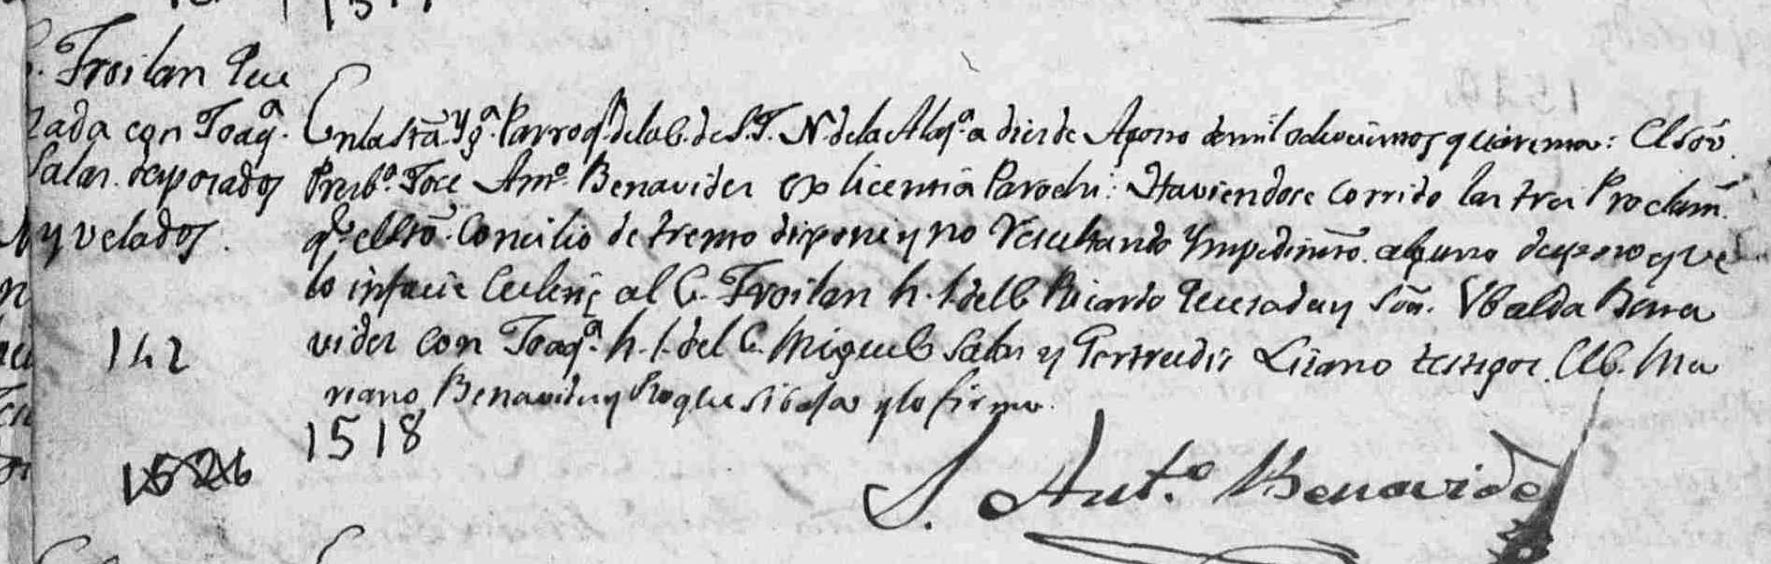 C. Froilan Que
zada con Joaqª.
Salas desposados
y velados.
142
1526
En la Stã. Ygª. Parroqˡ. de la C. de S. J. N. de la Alajª. a dies de Agosto de mil ochocientos quarenta: El Sõr.
Presbº. Jose Antº. Benavides ex licentia Parochi: Haviendose corrido las tres Proclam.
qᵉ. el Stõ. Concilio de trento dispone y no resultando Ympedimtõ. alguno desposo y ve
lo infacie eclesię al C. Froilan h. l. del C. Ricardo Quesada y Sõa. Ubalda Bena
vides con Joaqª. h. l. del C. Miguel Salas y Gertrudis Lisano testigos. El C. Ma
riano Benavides y Roque Sibaja y lo firmo.
1518
J. Antº. Benavides